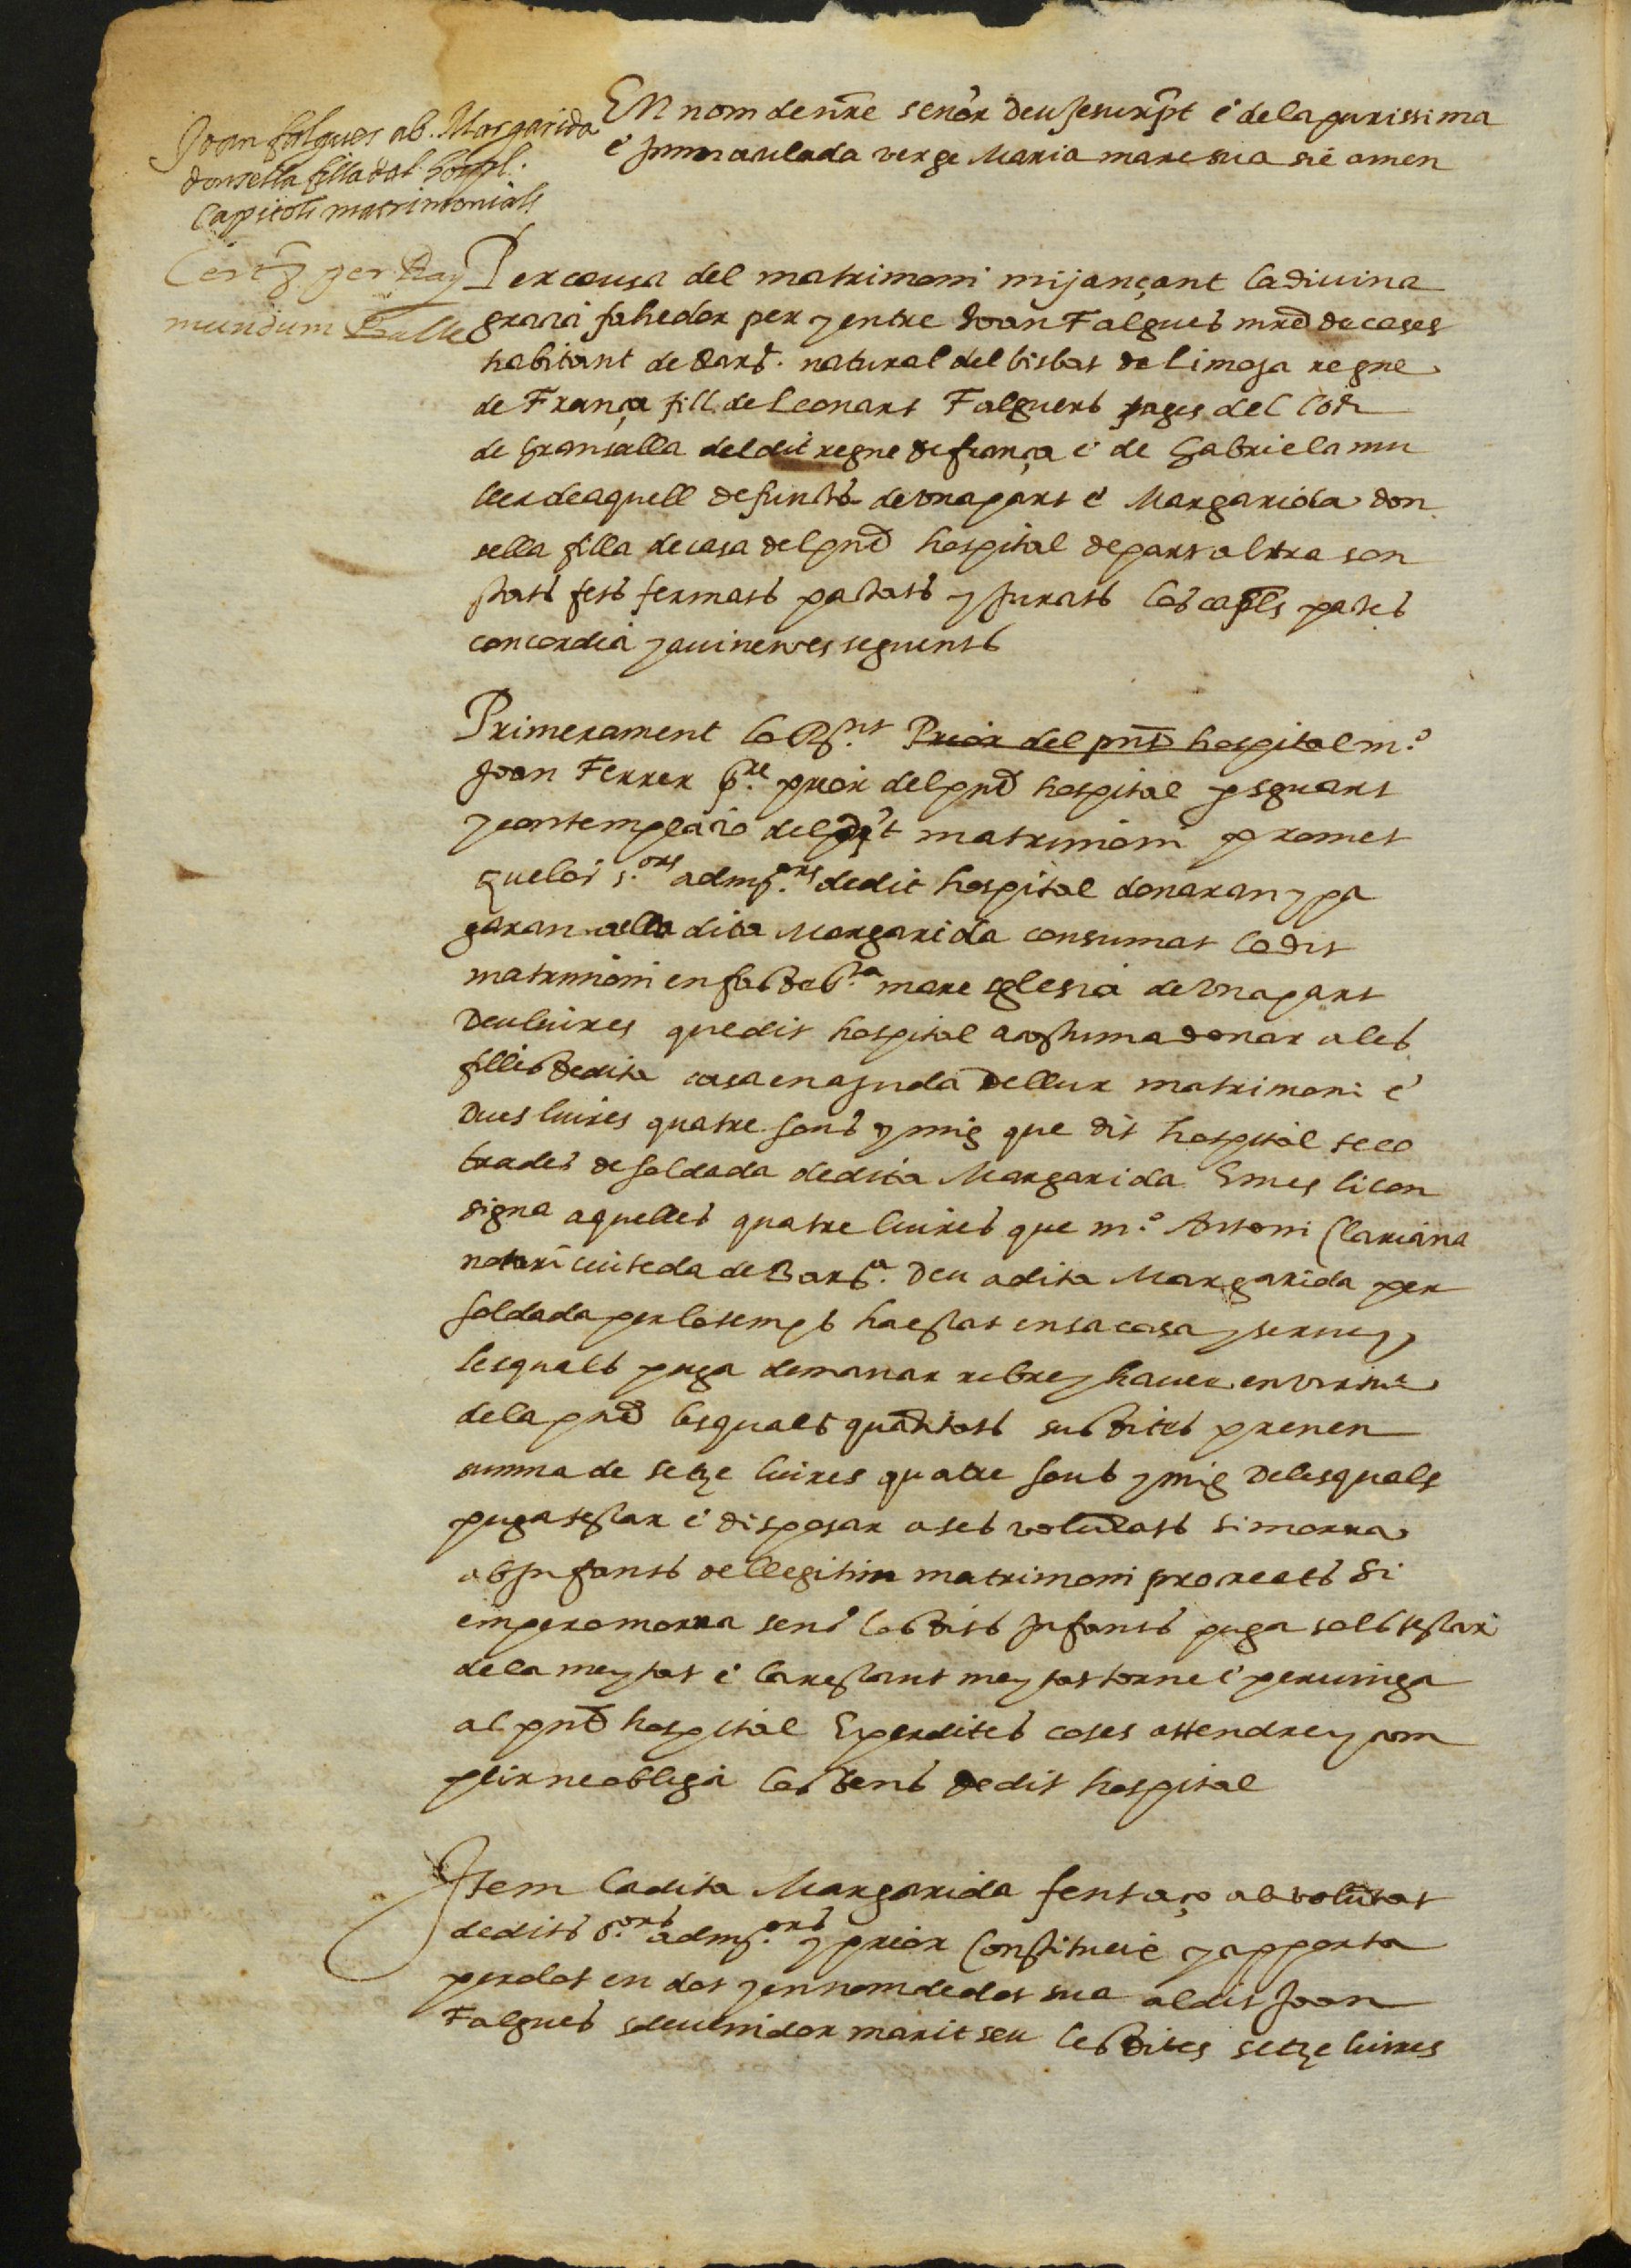 Joan falgues ab Margarida
donsella filla del hospl.
Capitols matrimonials
Cert per Ray
mundum Balle
EN nom de nre senor deu Jesucrpt e de la purissima
e Immaculada verge Maria mare sua sie amen
Per causa del matrimoni mijançant la diuina
gracia fahedor per y entre Joan Falgues mre de cases
habitant de Bar. natural del bisbat de Limoja regne
de França fill de Leonart Falguers pages del loch
de Gransalla del dit regne de frança e de Gabriela mu
ller de aquell defuncts de una part e Margarida don
sella filla de casa del pnt hospital de part altra son
stats fets fermats pactats y Jurats los capls pactes
concordia y auinences seguents
Primerament lo Rnt Prior del pnt hospital m.º
Joan Ferrer pre prior del pnt hospital per sguart
y contemplacio del pnt matrimoni promet
que los s.ors adm.ors de dit hospital donaran y pa
garan a ella dita Margarida consumat lo dit
matrimoni en fas de s.ta mare sglesia de una part
Deu liures que dit hospital acostuma donar a les
filles de dita casa en ajuda de llur matrimoni e
Dues liures quatre sous y mig que dit hospital te co
brades de soldada de dita Margarida E mes li con
signa aquelles quatre liures que m.º Antoni Clariana
notari ciuteda de Bar.a deu a dita Margarida per
soldada per lo temps ha estat en sa casa y seruey
les quals puga demanar rebre y hauer en virtut
de la pnt les quals quantitats susdites prenen
summa de setze liures quatre sous y mig de les quals
puga testar e disposar a ses voluntats si morra
ab Infants de llegitim matrimoni procreats Si
empero morra sens los dits Infants puga sols testar
de la meytat e la restant meytat torne e peruinga
al pnt hospital E per dites coses attendre y com
plir ne obliga los bens de dit hospital
Item la dita Margarida fent aço ab voluntat
de dits s.ors adm.ors y prior Constitueix y apporta
per dot en dot y en nom de dot sua al dit Joan
Falgues sdeuenidor marit seu les dites setze liures